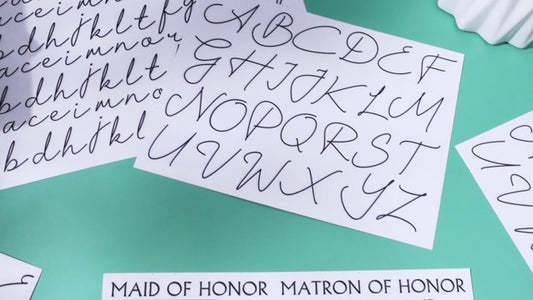 bdhjkltfg
aceimnor
bdhjklt
aceimno
bdhjkl
ABCDEF
GHIJKLM
NOPQRST
UVWXYZ
MAID OF HONOR MATRON OF HONOR